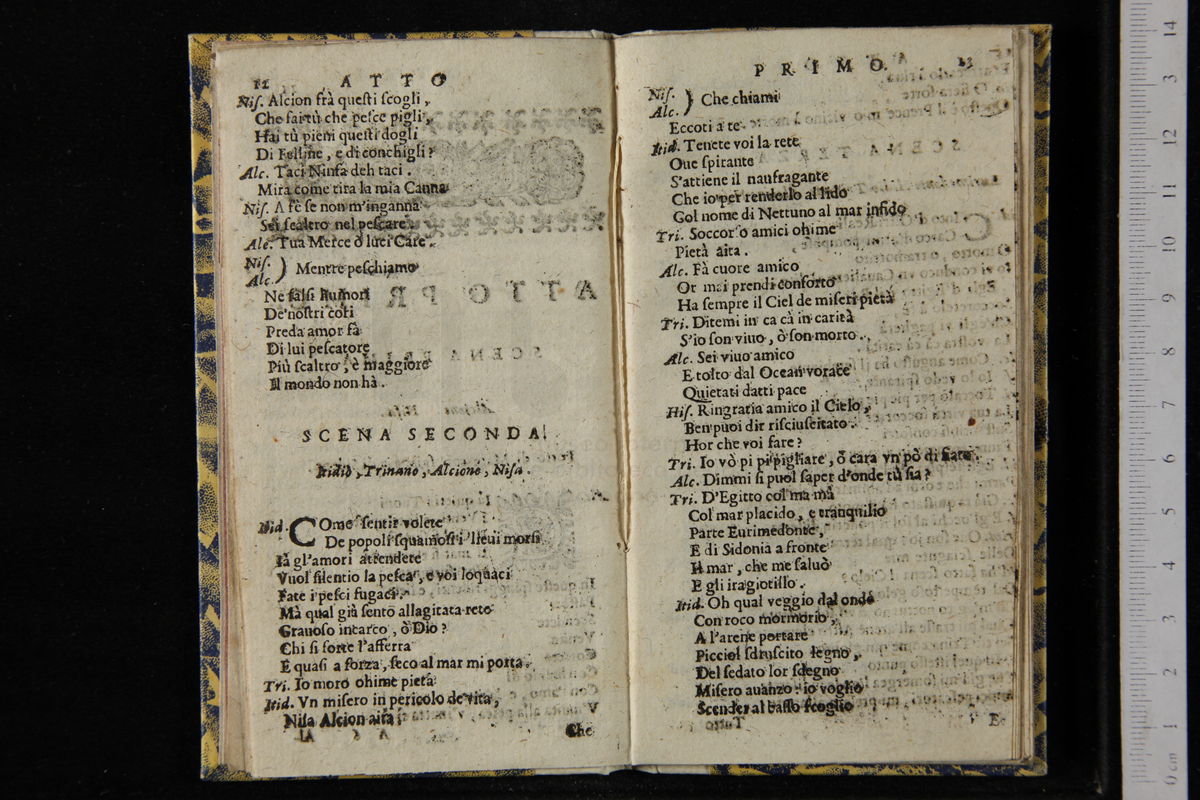 12 ATTO
Nis. Alcion frà questi scogli,
Che fai tù che pesce pigli,
Hai tù pieni questi dogli
Di Felline, e di conchigli?
Alc. Taci Ninfa deh taci.
Mira come tira la mia Canna
Nis. A fè se non m'inganna
Sei scaltro nel pescare
Alc. Tua Merce ò luci Care.
Nis.
Alc. ) Mentre peschiamo
Ne salsi humori
De'nostri cori
Preda amor fà
Di lui pescatore
Più scaltro, è maggiore
Il mondo non hà.
SCENA SECONDA.
Itidio, Trinano, Alcione, Nisa.
Itid. COme sentir volete
De popoli squamosi i lieui morsi
Ià gl'amori attendete
Vuol silentio la pesca, e voi loquaci
Fate i pesci fugaci.
Mà qual già sento allagitata rete
Grauoso incarco, ò Dio?
Chi si forte l'afferra
E quasi a forza, seco al mar mi porta.
Tri. Io moro ohime pietà
Itid. Vn misero in pericolo de vita,
Nisa Alcion aita
Che
PRIMO. 13
Nis.
Alc. ) Che chiami
Eccoti a te.
Itid. Tenete voi la rete
Oue spirante
S'attiene il naufragante
Che io per renderlo al lido
Gol nome di Nettuno al mar infido
Tri. Soccorso amici ohime
Pietà aita.
Alc. Fà cuore amico
Or mai prendi conforto
Ha sempre il Ciel de miseri pietà
Tri. Ditemi in ca cà in carità
S'io son viuo, ò son morto.
Alc. Sei viuo amico
E tolto dal Ocean vorace
Quietati datti pace
His. Ringratia amico il Cielo,
Ben puoi dir risciuscitato.
Hor che voi fare?
Tri. Io vò pi pipigliare, ò cara vn pò di fiato.
Alc. Dimmi si puol saper d'onde tù sia?
Tri. D'Egitto col ma mà
Col mar placido, e tranquilio
Parte Eurimedonte,
E di Sidonia a fronte
Il mar, che me saluò
E gli ira giotillo.
Itid. Oh qual veggio dal onde
Con roco mormorio,
A l'arene portare
Picciol sdruscito legno,
Del sedato lor sdegno
Misero auanzo: io voglio
Scender al basso scoglio
E